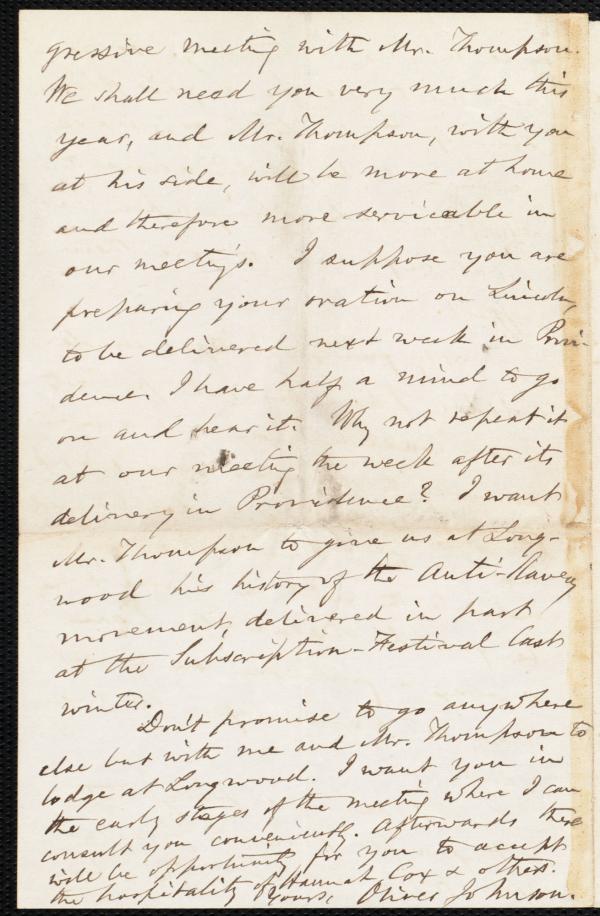 gressive meeting with Mr. Thompson.
We shall need you very much this
year, and Mr. Thompson, with you
at his side, will be more at home
and therefore more servicable in
our meetings. I suppose you are
preparing your oration on Lincoln,
to be delivered next week in Provi-
dence. I have half a mind to go
on and hear it. Why not repeat it
at our meeting the week after its
delivery in Providence? I want
Mr. Thompson to give us at Long-
wood his history of the Anti-Slavery
movement, delivered in part
at the Subscription-Festival last
winter.
Don't promise to go anywhere
else but with me and Mr. Thompson to
lodge at Longwood. I want you in
the early stages of the meeting where I can
consult you conveniently. Afterwards there
will be opportunity for you to accept
the hospitality of Hannah Cox & others.
Yours, Oliver Johnson.